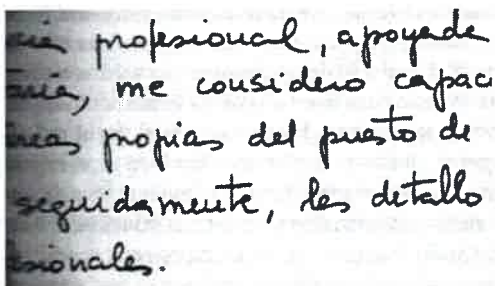 profesional, apoyade
me considero capac
propias del puesto de
seguidamente, les detallo
sionales.